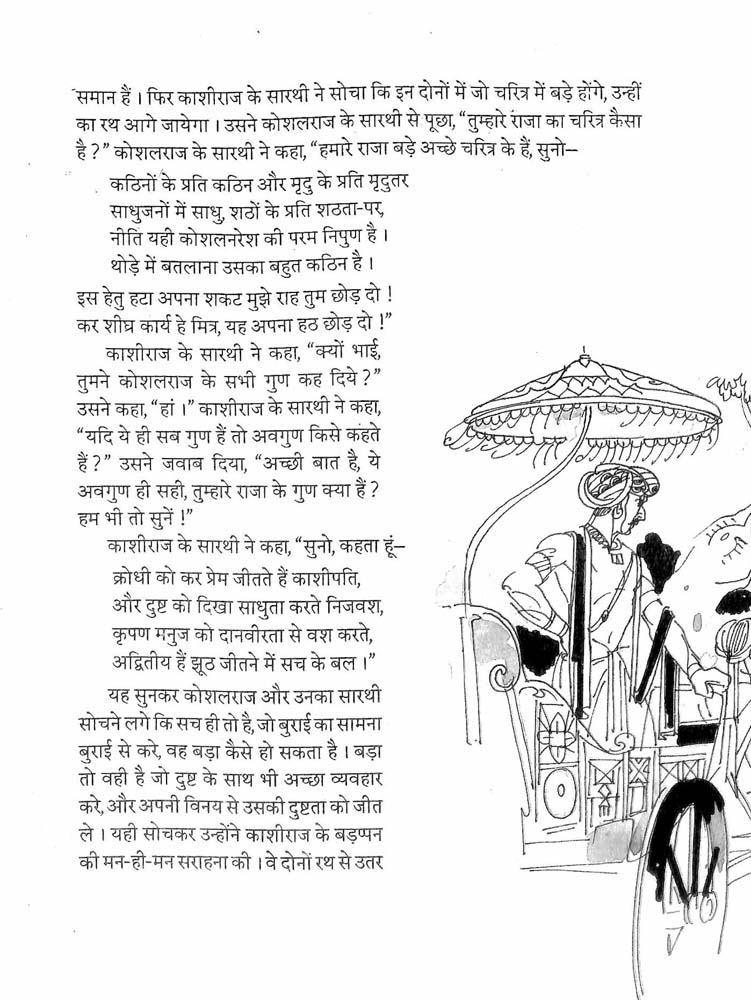 समान हैं । फिर काशीराज के सारथी ने सोचा कि इन दोनों में जो चरित्र में बड़े होंगे, उन्हीं
का रथ आगे जायेगा । उसने कोशलराज के सारथी से पूछा, “तुम्हारे राजा का चरित्र कैसा
है ?” कोशलराज के सारथी ने कहा, “हमारे राजा बड़े अच्छे चरित्र के हैं, सुनो—
कठिनों के प्रति कठिन और मृदु के प्रति मृदुतर
साधुजनों में साधु, शठों के प्रति शठता-पर,
नीति यही कोशलनरेश की परम निपुण है ।
थोड़े में बतलाना उसका बहुत कठिन है ।
इस हेतु हटा अपना शकट मुझे राह तुम छोड़ दो !
कर शीघ्र कार्य हे मित्र, यह अपना हठ छोड़ दो !”
काशीराज के सारथी ने कहा, “क्यों भाई,
तुमने कोशलराज के सभी गुण कह दिये ?”
उसने कहा, “हां ।” काशीराज के सारथी ने कहा,
“यदि ये ही सब गुण हैं तो अवगुण किसे कहते
हैं ?” उसने जवाब दिया, “अच्छी बात है, ये
अवगुण ही सही, तुम्हारे राजा के गुण क्या हैं ?
हम भी तो सुनें !”
काशीराज के सारथी ने कहा, “सुनो, कहता हूं—
क्रोधी को कर प्रेम जीतते हैं काशीपति,
और दुष्ट को दिखा साधुता करते निजवश,
कृपण मनुज को दानवीरता से वश करते,
अद्वितीय हैं झूठ जीतने में सच के बल ।”
यह सुनकर कोशलराज और उनका सारथी
सोचने लगे कि सच ही तो है, जो बुराई का सामना
बुराई से करे, वह बड़ा कैसे हो सकता है । बड़ा
तो वही है जो दुष्ट के साथ भी अच्छा व्यवहार
करे, और अपनी विनय से उसकी दुष्टता को जीत
ले । यही सोचकर उन्होंने काशीराज के बड़प्पन
की मन-ही-मन सराहना की । वे दोनों रथ से उतर